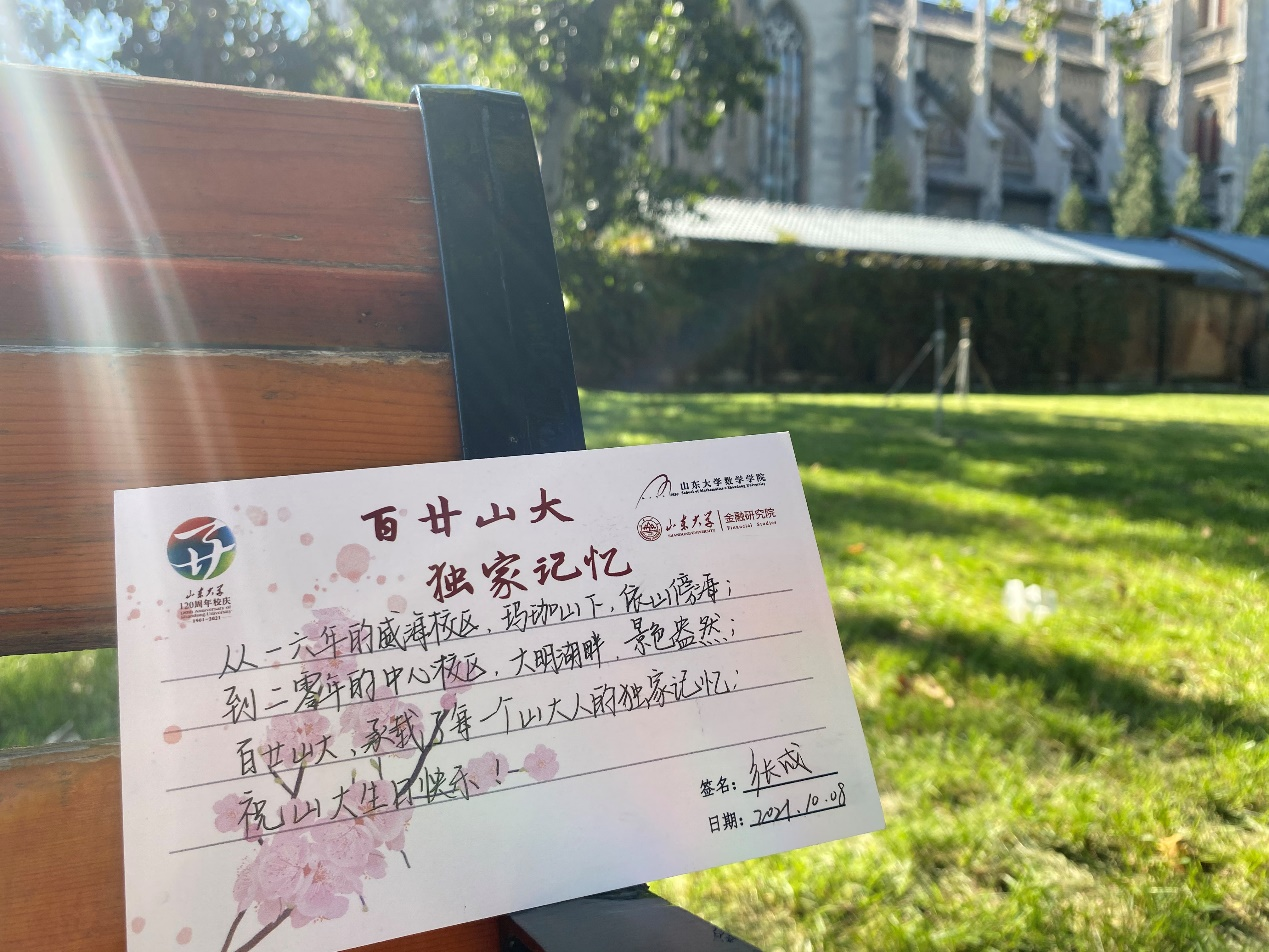 百廿山大
独家记忆
山东大学
120周年校庆
1901-2021
山东大学数学学院
School of Mathematics Shandong University
山东大学
SHANDONG UNIVERSITY
金融研究院
Financial Studies
从一六年的威海校区，玛珈山下，依山傍海；
到二零年的中心校区，大明湖畔，景色盎然；
百廿山大，承载了每一个山大人的独家记忆；
祝山大生日快乐！
签名：张成
日期：2021.10.08